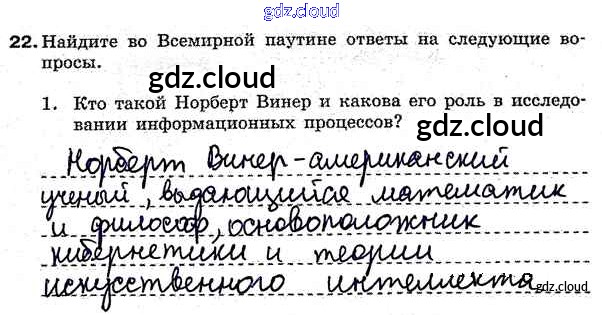 gdz.cloud
22. Найдите во Всемирной паутине ответы на следующие во-
просы.
gdz.cloud
gdz.cloud
1. Кто такой Норберт Винер и какова его роль в исследо-
вании информационных процессов?
gdz.cloud
Норберт Винер-американский
ученый, выдающийся математик
и философ, основоположник
кибернетики и теории
искусственного интеллекта
gdz.cloud